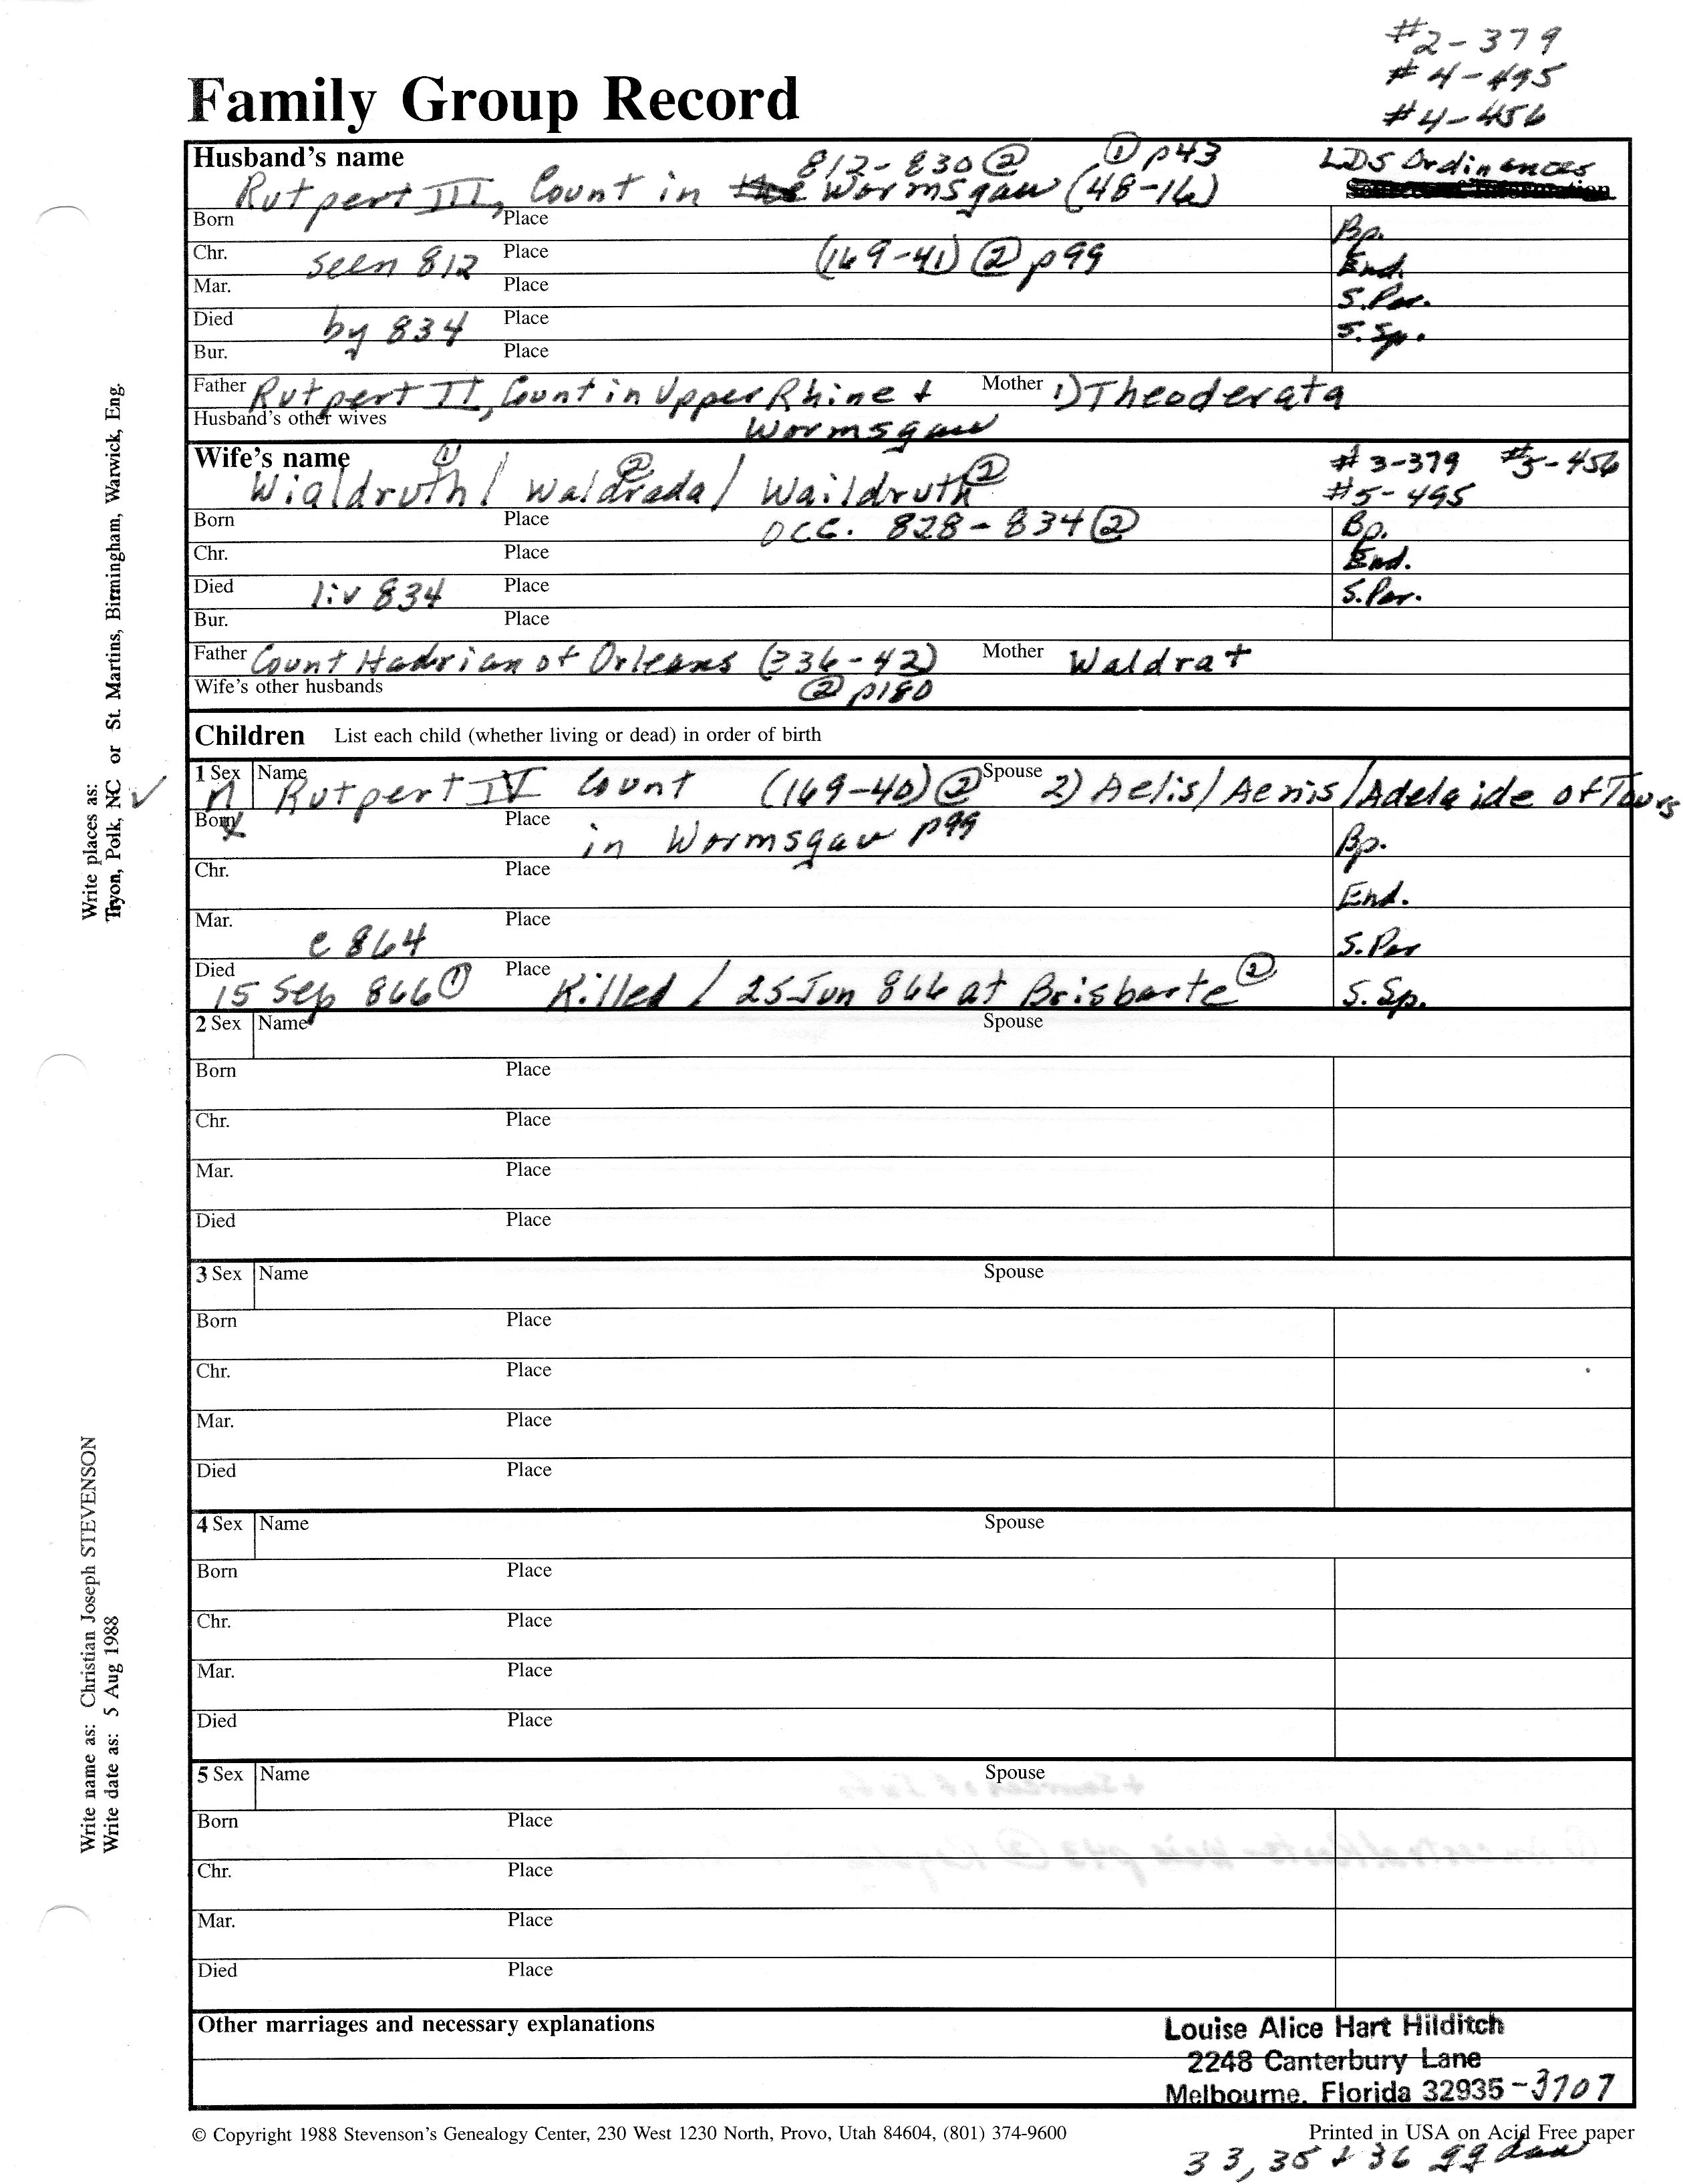 #2-379
#4-495
#4-456
Family Group Record
Husband's name 812-830 ② ① p43 LDS Ordinances
Rutpert III, Count in Wormsgau (48-16)
Born Place Bp.
Chr. seen 812 Place (169-41) ② p99 End.
Mar. Place S.Par.
Died by 834 Place S.Sp.
Bur. Place
Father Rutpert II, Count in Upper Rhine + Mother 1) Theoderata
Husband's other wives Wormsgau
Wife's name #3-379 #5-456
Wialdruth ① / Waldrada ② / Waildruth ② #5-495
Born Place occ. 828-834 ② Bp.
Chr. Place End.
Died liv 834 Place S.Par.
Bur. Place
Father Count Hadrian of Orleans (336-42) Mother Waldrat
Wife's other husbands ② p180
Children List each child (whether living or dead) in order of birth
1 Sex M Name Rutpert IV Count (169-40) ② Spouse 2) Aelis/Aenis/Adelaide of Tours
✓
Born X Place in Wormsgau p99 Bp.
Chr. Place End.
Mar. c 864 Place S.Par
Died 15 Sep 866 ① Place Killed / 25 Jun 866 at Brisbarte ② S.Sp.
2 Sex Name Spouse
Born Place
Chr. Place
Mar. Place
Died Place
3 Sex Name Spouse
Born Place
Chr. Place
Mar. Place
Died Place
4 Sex Name Spouse
Born Place
Chr. Place
Mar. Place
Died Place
5 Sex Name Spouse
Born Place
Chr. Place
Mar. Place
Died Place
Other marriages and necessary explanations
Louise Alice Hart Hilditch
2248 Canterbury Lane
Melbourne, Florida 32935-3707
© Copyright 1988 Stevenson's Genealogy Center, 230 West 1230 North, Provo, Utah 84604, (801) 374-9600 Printed in USA on Acid Free paper
33, 35 + 36 gg dau
Write places as:
Tryon, Polk, NC or St. Martins, Birmingham, Warwick, Eng.
Write name as: Christian Joseph STEVENSON
Write date as: 5 Aug 1988